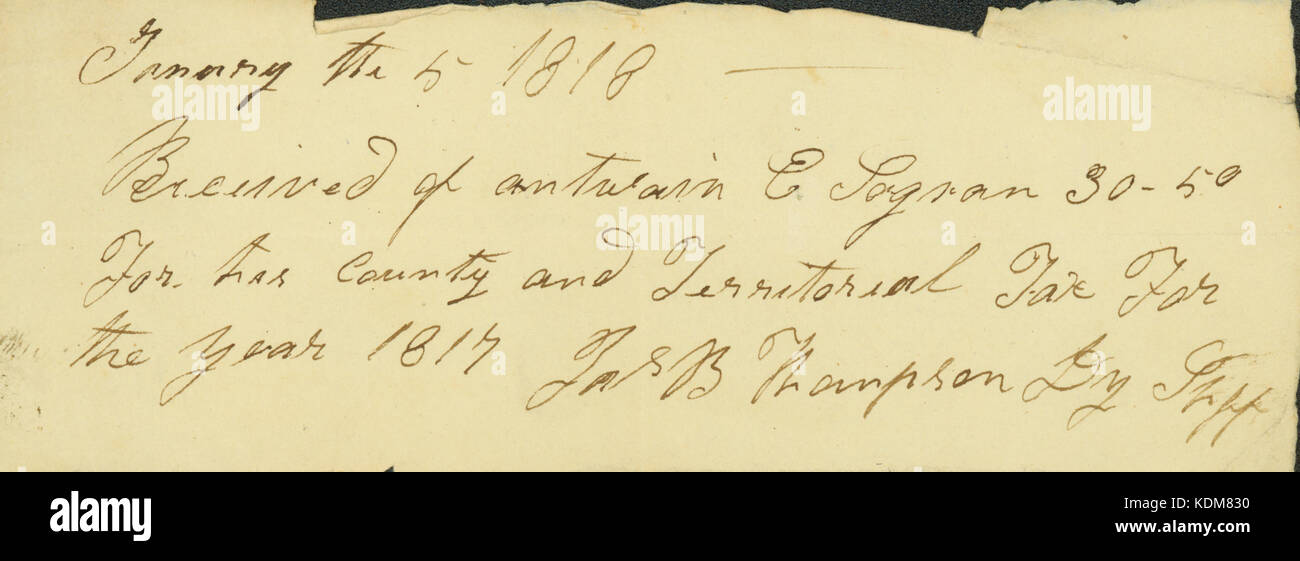 Janury the 5 1818
Received of antwain E Sogran 30-50
For his County and Territorial Tax For
the year 1817 Jas B Thampson Dy Shff
alamy
a
alamy
Image ID: KDM830
www.alamy.com